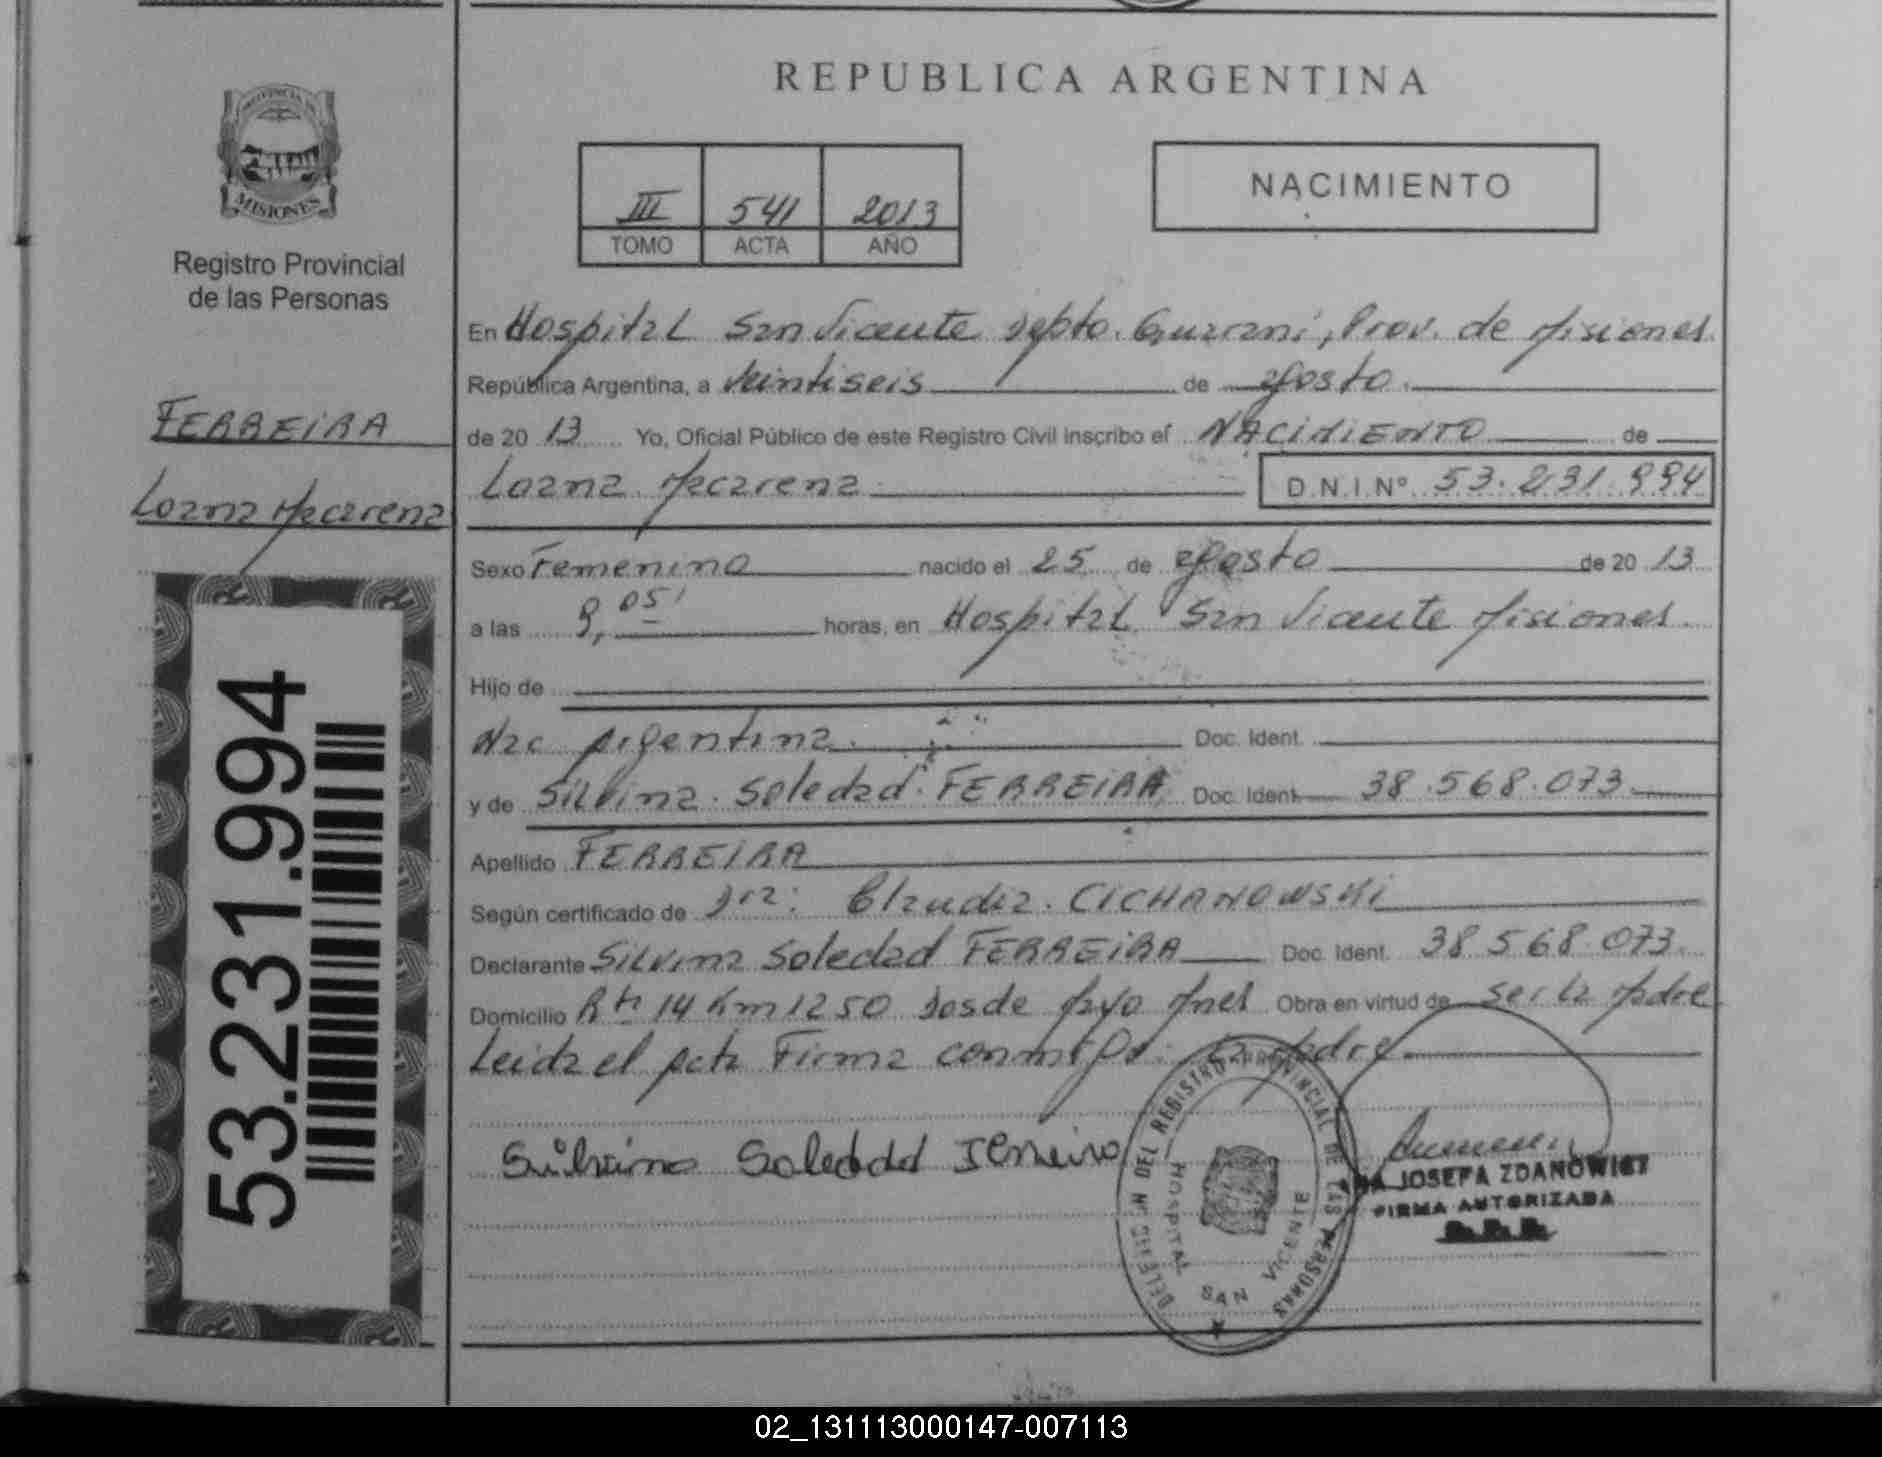 REPUBLICA ARGENTINA
PROVINCIA DE
MISIONES
Registro Provincial
de las Personas
FERREIRA
Loana Macarena
53.231.994
III 541 2013
TOMO ACTA AÑO
NACIMIENTO
En Hospital San Vicente Depto. Guarani, Prov. de Misiones
República Argentina, a Veintiseis de Agosto
de 20 13 Yo, Oficial Público de este Registro Civil inscribo el NACIMIENTO de
Loana Macarena D.N.I.Nº 53.231.994
Sexo Femenino nacido el 25 de Agosto de 20 13
a las 9,05' horas, en Hospital San Vicente Misiones
Hijo de
Nac Argentina. Doc. Ident.
y de Silvina Soledad FERREIRA Doc. Ident. 38.568.073
Apellido FERREIRA
Según certificado de Dra: Claudia CICHANOWSKI
Declarante Silvina Soledad FERREIRA Doc. Ident. 38.568.073
Domicilio Rta 14 Km 1250 Dos de Mayo Mnes Obra en virtud de ser la Madre
Leida el Acta Firma conmigo: la Madre
Silvina Soledad Ferreira
DELEGACION DEL REGISTRO PROVINCIAL DE LAS PERSONAS
HOSPITAL SAN VICENTE
JOSEFA ZDANOWICZ
FIRMA AUTORIZADA
02_131113000147-007113